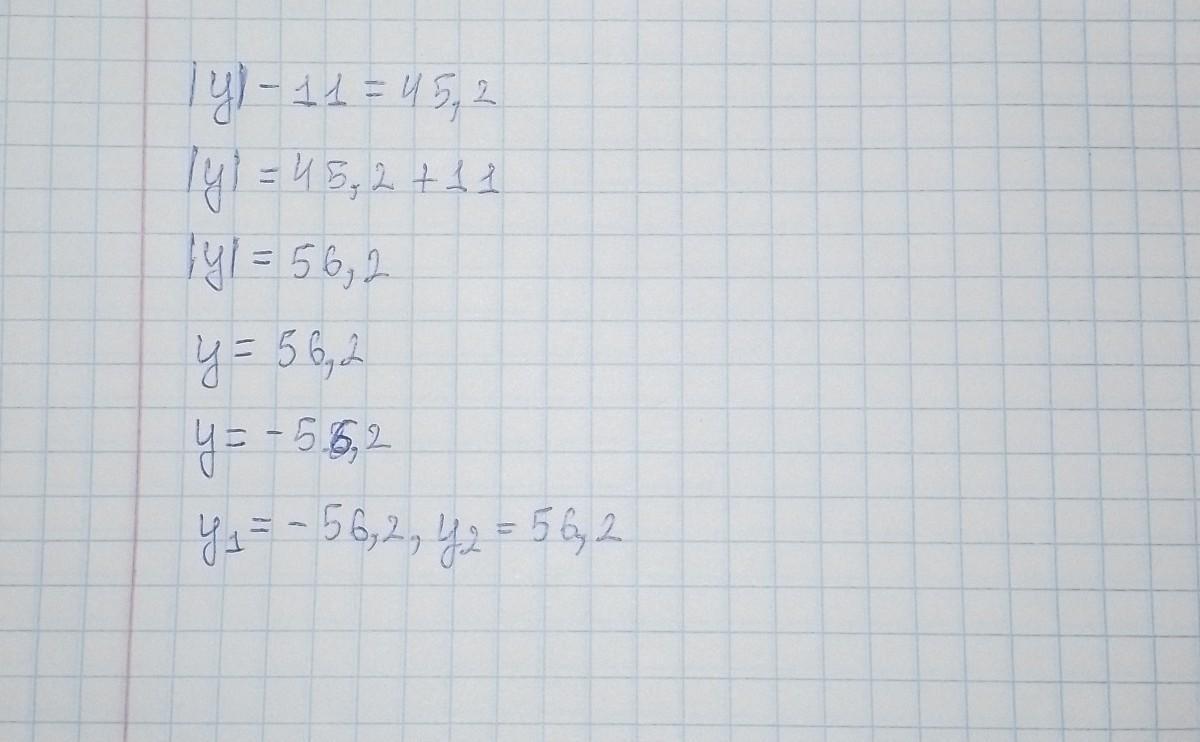 |y| - 11 = 45,2
|y| = 45,2 + 11
|y| = 56,2
y = 56,2
y = -56,2
y₁ = -56,2, y₂ = 56,2